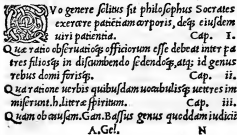 QVo genere solitus sit philosophus Socrates
exercere patiētiam corporis, deq; eiusdem
uiri patientia. Cap. I.
Quæ ratio obseruatioq; officiorum esse debeat inter pa
tres filiosq; in discumbendo sedendoq;, atq; id genus
rebus domi forisq;. Cap. II.
Qua ratione uerbis quibusdam uocabulisq; ueteres im
miserunt.h.literæ spiritum. Cap. III.
Quam ob causam.Gau.Bassus genus quoddam iudicii
A.Gel. N